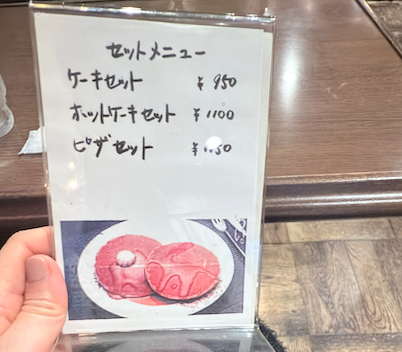 セットメニュー
ケーキセット ¥950
ホットケーキセット ¥1100
ピザセット